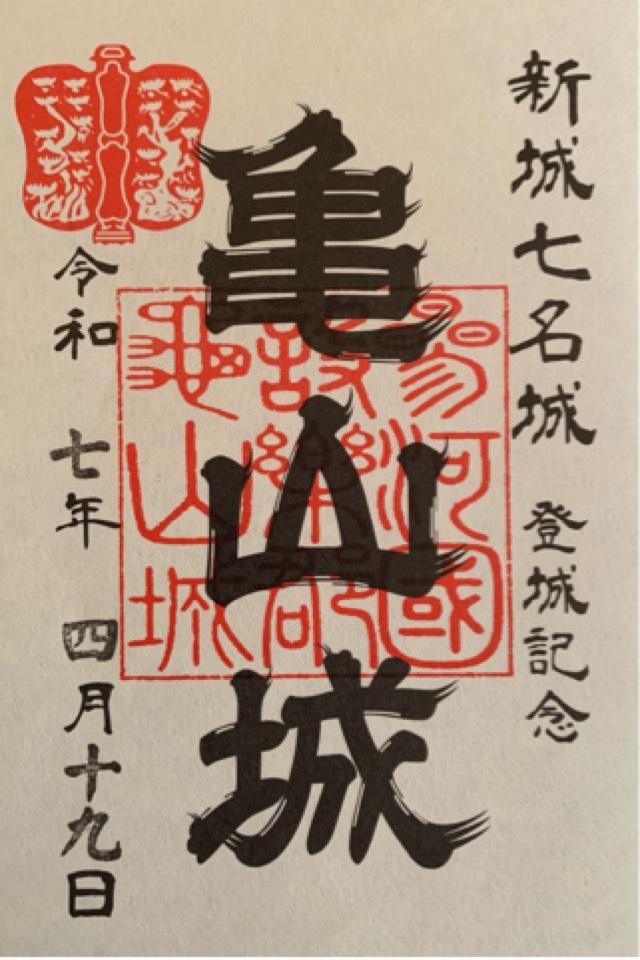 新城七名城 登城記念
亀山城
參河國
設樂郡
龜山城
令和 七年 四月十九日